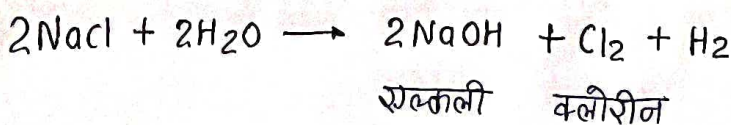 2NaCl + 2H2O → 2NaOH + Cl2 + H2
एल्कली क्लोरीन